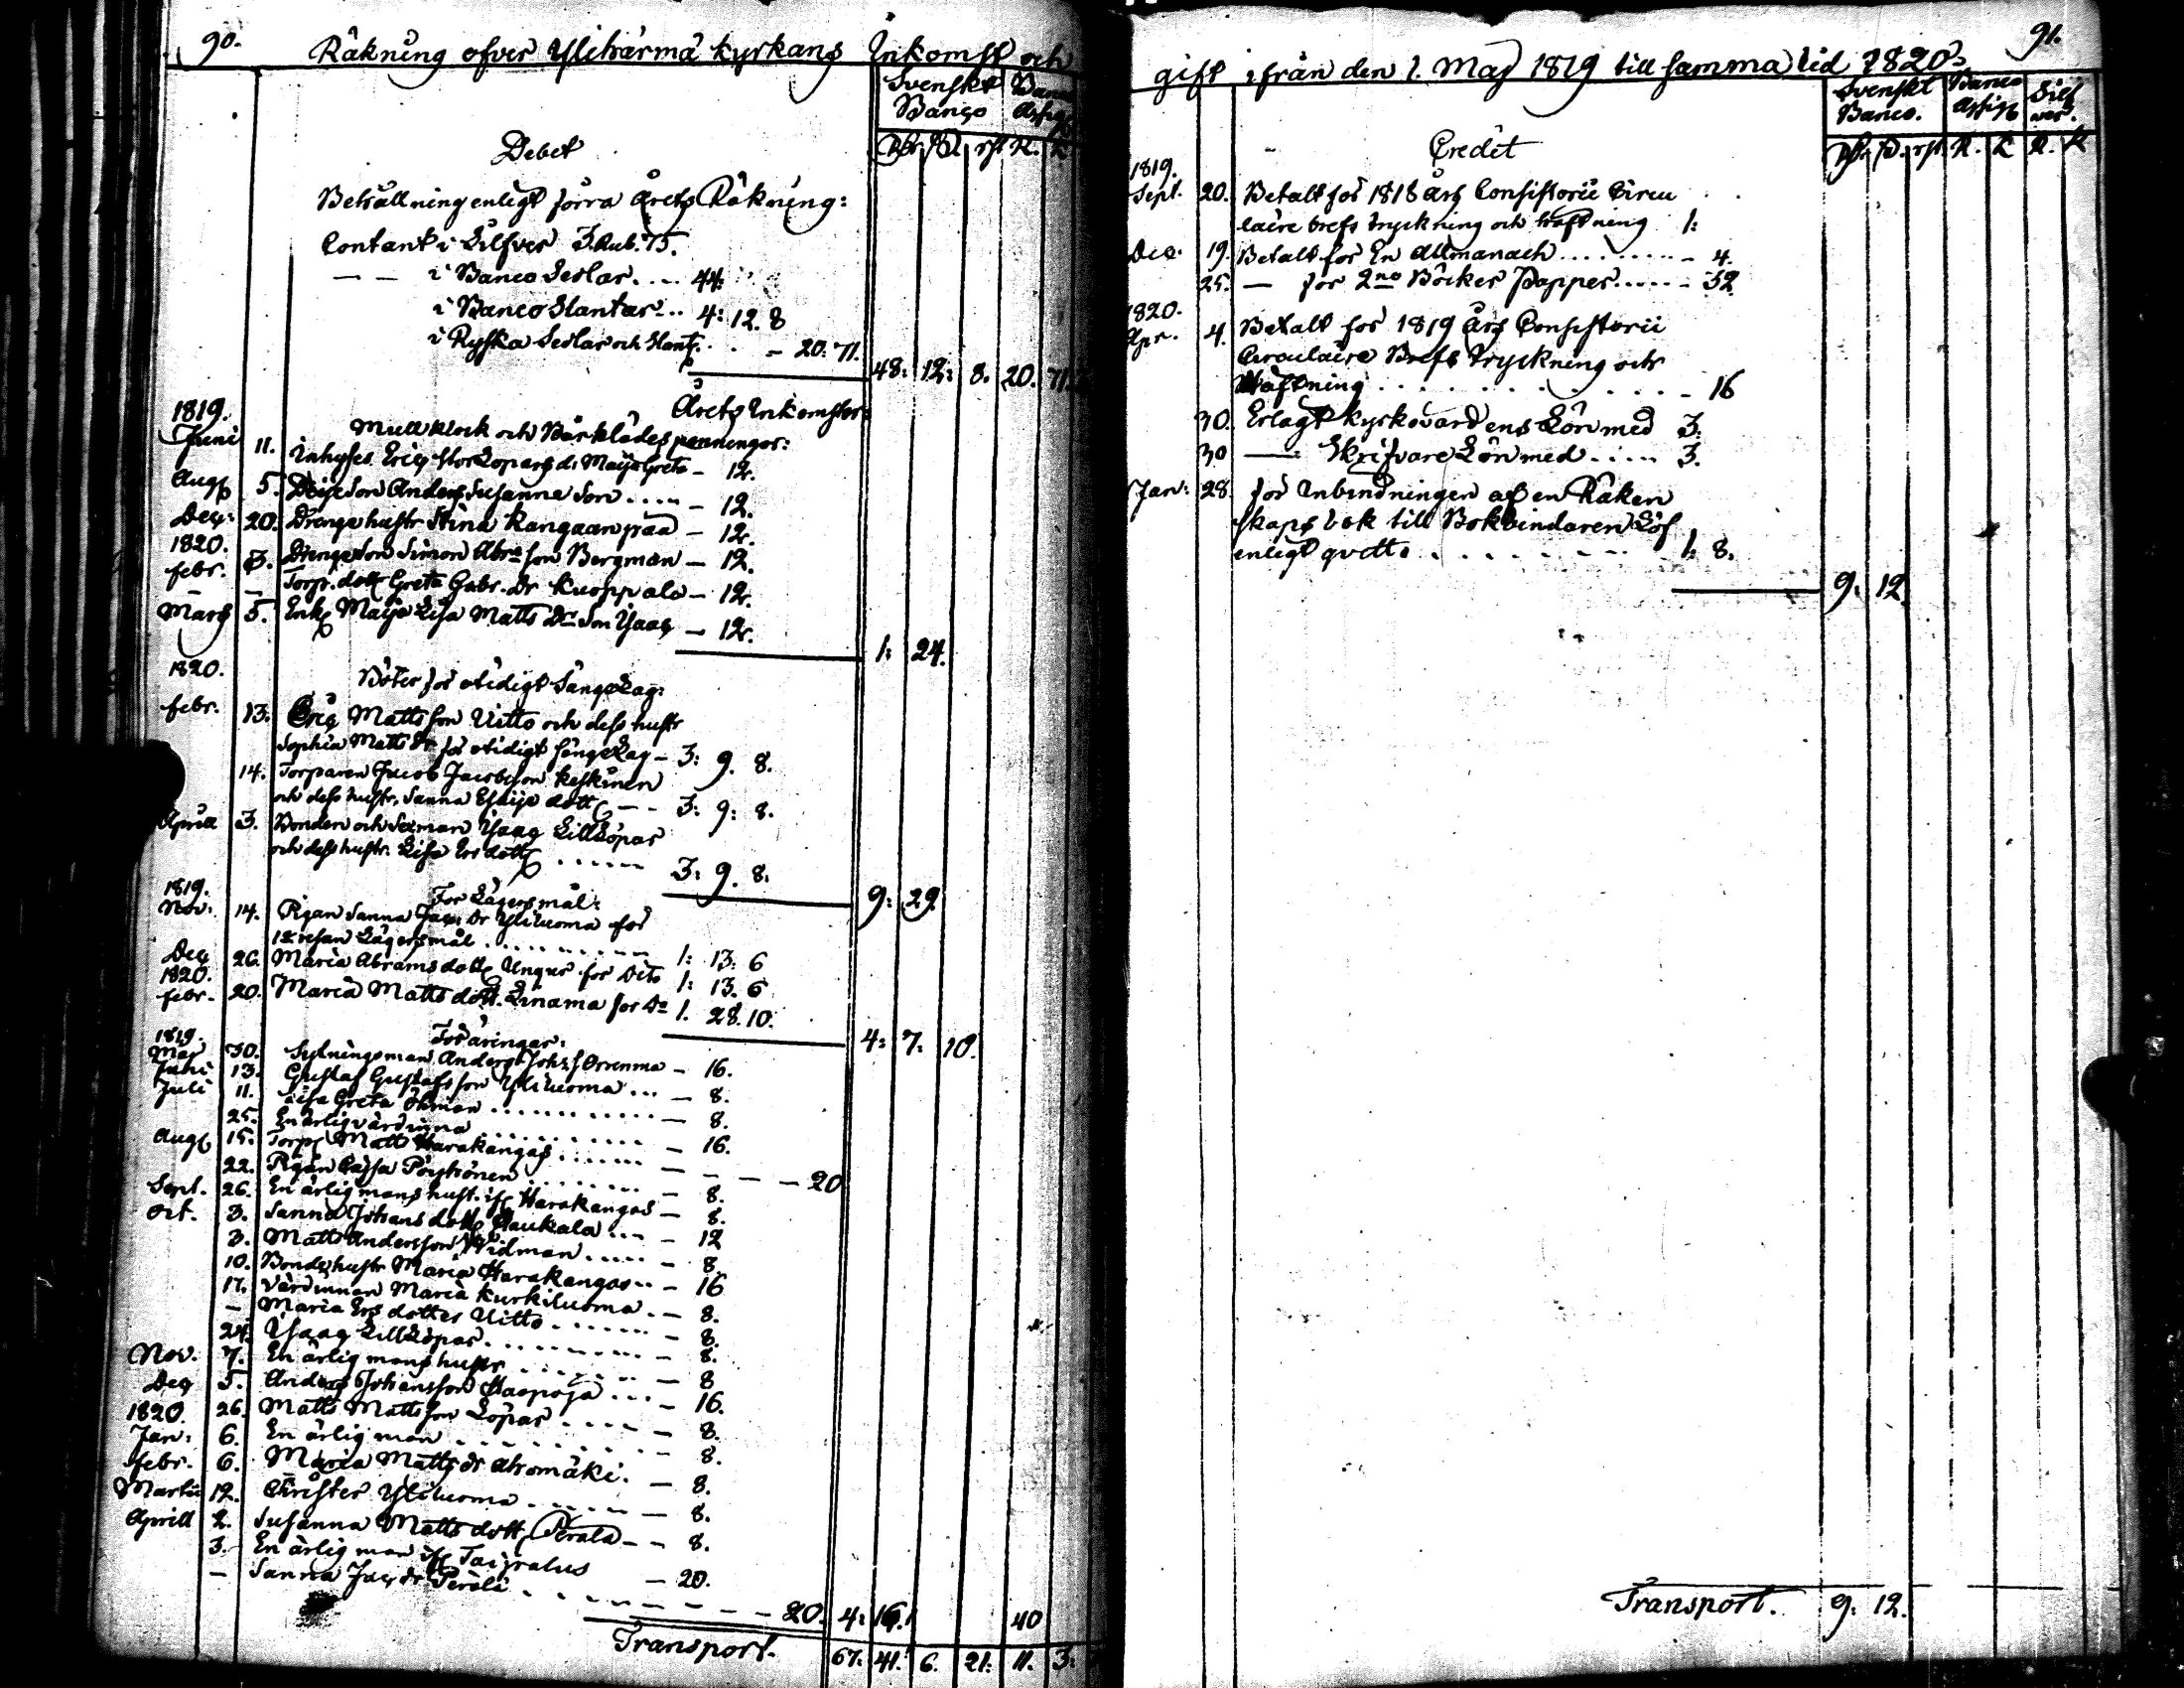 90.
Räkning öfver Ylihärmä kyrkans Inkomst och
Svenskt Banco
Banco Assig
Debet
Rdr. s. rst. R. K
Behållning enligt förra årets Räkning:
Contant i Silfver 3. Rub. 75.
— — i Banco Sedlar.... 44:
i Banco Slantar... 4: 12. 8
i Ryska Sedlar och Slant. . . - 20: 71.
48: 12: 8. 20. 71.
Årets Inkomster:
1819. Mull klock och Bårklädes penningar:
Juni 11. Inhyses Eriq Storlopars dr Maija Greta - 12.
Aug 5. Anders Susanna son .... - 12.
Dec: 20. Drenge hustr Stina Kangaanpää - 12.
1820.
febr. 3. Drenge Son Simon Abr.son Bergman - 12.
— Torp. dott Greta Gabr. dr Kuoppala - 12.
Mars 5. Enk Maija Lisa Matts Dr - 12.
1: 24.
1820. Böter för otidigt Sängelag:
febr. 13. Eriq Mattsson Uitto och dess hustr
Sophia Matts dr för otidigt sängelag - 3: 9. 8.
14. Torparen Jacob Jacobsson Keskinen
och dess hustr. Sanna Esaija dott - - 3: 9: 8.
Aprill 3. Bonden och Sexman Isaaq Lilllöpar
och dess hustr. Lisa Ers dott ...... 3: 9. 8.
9: 29
1819. För Lägersmål:
Nov: 14. Pigan Sanna Jac: dr Yliluoma för
1a resan Lägersmål .......... 1: 13: 6
Dec 26. Maria Abrams dott Ungur för Dito 1: 13. 6
1820.
febr. 20. Maria Matts dott. Linama för Do 1. 28. 10.
4: 7: 10.
1819. Föräringar:
Maj 30. Sytningsman Anders Johs Orrenma - 16.
Juni 13. Gustaf Gustafsson Yliluoma ... - 8.
Juli 11. Lisa Greta Öhman ............ - 8.
25. En ärlig värdinna .......... - 16.
Aug 15. Torp Matts Harakangas ....... - - - - 20
22. Pigan Cajsa Pöyhönen ........ - 8.
Sept. 26. En ärlig mans hust. if Harakangas - 8.
Oct. 3. Sanna Johans dott Haukala ... - 12
3. Matts Andersson Widman ..... - 8.
10. Bonde hustr Maria Harakangas .. - 16
17. Värdinnan Maria Kurkiluoma . - 8.
— Maria Ers dotter Uitto ....... - 8.
24. Isaaq Lilllöpar .......... - 8.
Nov. 7. En ärlig mans hustr ........ - 8
Dec 5. Anders Johansson Haapoja ... - 16.
1820. 26. Matts Mattsson Löpar .... - 8.
Jan: 6. En ärlig man .......... - 8.
febr. 6. Maria Matts dr Ahomäki. - 8.
Martii 12. Christer Yliluoma ...... - 8.
Aprill 2. Susanna Matts dott Perälä - - 8.
3. En ärlig man if - 20.
— Sanna Jac dr Perälä . . - - - - - - 20. 4: 16. 40
Transport. 67: 41. 6. 21: 11. 3:
91.
gift ifrån den 1. Maj 1819 till samma tid 1820.
Svenskt Banco.
Banco Assign
Silf ver.
Credit
Rdr. s. rst. R. K R. K
1819.
Sept. 20. Betalt för 1818 års Consistorii Circu
laire brefs tryckning och häftning 1:
Dec. 19. Betalt för En Allmanach ........ - 4.
25. — för 2no Böcker Papper ..... - 32
1820.
Apr. 4. Betalt för 1819 års Consistorii
Circulaire Brefs tryckning och
Häftning ............. - 16
30. Erlagt Kyrkovärdens Lön med 3.
30 — Skrifvare Lön med ..... 3.
Jan: 28. för Inbindningen af en Räken
skaps bok till Bokbindaren Löf
enligt qvitto ......... 1: 8.
9: 12.
Transport. 9: 12.